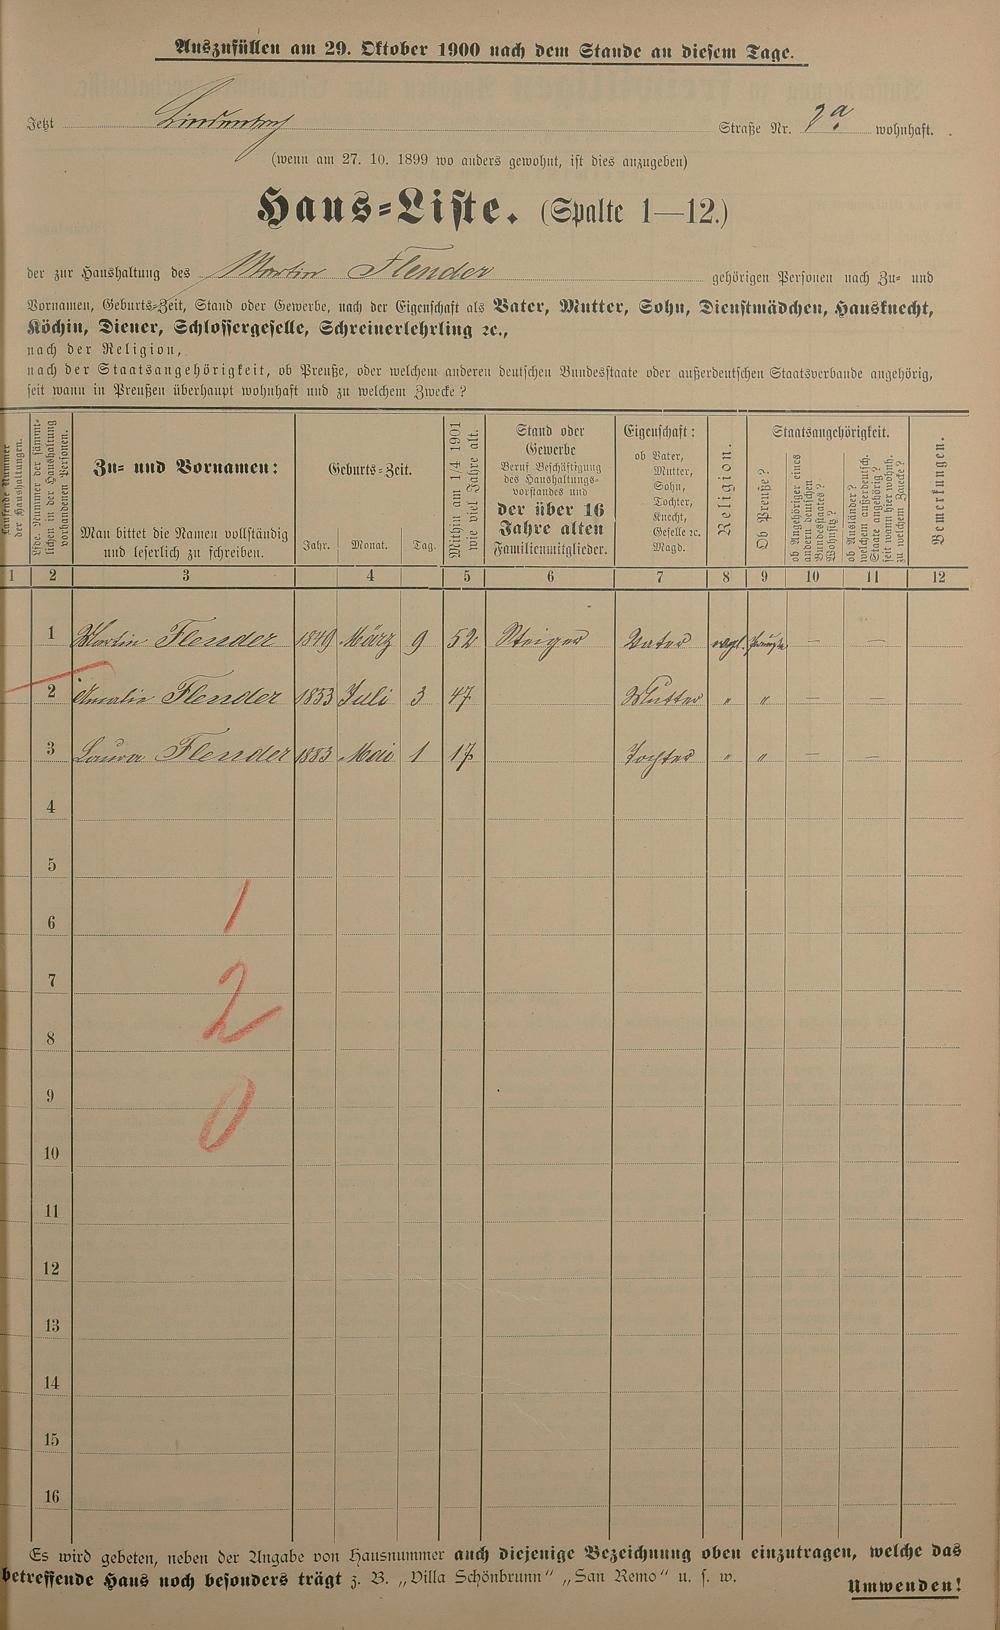 Auszufüllen am 29. Oktober 1900 nach dem Stande an diesem Tage.
Jetzt Straße Nr. wohnhaft.
(wenn am 27. 10. 1899 wo anders gewohnt, ist dies anzugeben)
Haus-Liste. (Spalte 1—12.)
der zur Haushaltung des Martin Flender gehörigen Personen nach Zu- und
Vornamen, Geburts-Zeit, Stand oder Gewerbe, nach der Eigenschaft als Vater, Mutter, Sohn, Dienstmädchen, Hausknecht,
Köchin, Diener, Schlossergeselle, Schreinerlehrling ꝛc.,
nach der Religion,
nach der Staatsangehörigkeit, ob Preuße, oder welchem anderen deutschen Bundesstaate oder außerdeutschen Staatsverbande angehörig,
seit wann in Preußen überhaupt wohnhaft und zu welchem Zwecke?
Laufende Nummer
der Haushaltungen.
Lfde. Nummer der sämmt-
lichen in der Haushaltung
vorhandenen Personen.
Zu- und Vornamen:
Man bittet die Namen vollständig
und leserlich zu schreiben.
Geburts-Zeit.
Jahr. Monat. Tag.
Mithin am 1/4 1901
wie viel Jahre alt.
Stand oder
Gewerbe
Beruf Beschäftigung
des Haushaltungs-
vorstandes und
der über 16
Jahre alten
Familienmitglieder.
Eigenschaft:
ob Vater,
Mutter,
Sohn,
Tochter,
Knecht,
Geselle ꝛc.
Magd.
Religion.
Staatsangehörigkeit.
Ob Preuße?
ob Angehöriger eines
andern deutschen
Bundesstaates?
Wohnsitz?
ob Ausländer?
welchem außerdeutsch.
Staate angehörig?
seit wann hier wohnh.
zu welchem Zwecke?
Bemerkungen.
1 2 3 4 5 6 7 8 9 10 11 12
1 Martin Flender 1849 März 9 52 Steiger Vater evgl. Preuße — —
2 Amalie Flender 1853 Juli 3 47 Mutter " " — —
3 Laura Flender 1883 Mai 1 17 Tochter " " — —
4
5
6
1
7
2
8
9
0
10
11
12
13
14
15
16
Es wird gebeten, neben der Angabe von Hausnummer auch diejenige Bezeichnung oben einzutragen, welche das
betreffende Haus noch besonders trägt z. B. „Villa Schönbrunn" „San Remo" u. s. w.
Umwenden!